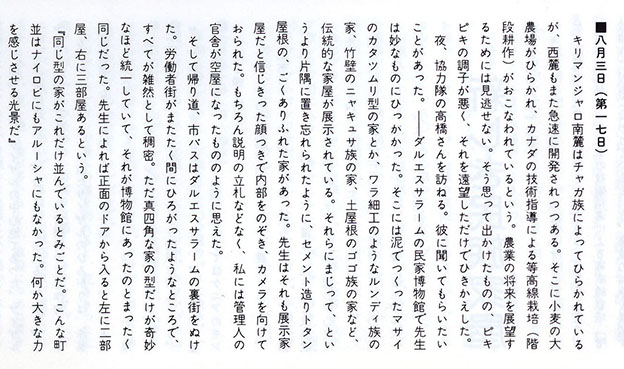 ■八月三日（第一七日）
キリマンジャロ南麓はチャガ族によってひらかれている
が、西麓もまた急速に開発されつつある。そこに小麦の大
農場がひらかれ、カナダの技術指導による等高線栽培（階
段耕作）がおこなわれているという。農業の将来を展望す
るためには見逃せない。そう思って出かけたものの、ピキ
ピキの調子が悪く、それを遠望しただけでひきかえした。
夜、協力隊の高橋さんを訪ねる。彼に聞いてもらいたい
ことがあった。――ダルエスサラームの民家博物館で先生
は妙なものにひっかかった。そこには泥でつくったマサイ
のカタツムリ型の家とか、ワラ細工のようなルンディ族の
家、竹壁のニャキュサ族の家、土屋根のゴゴ族の家など、
伝統的な家屋が展示されている。それらにまじって、とい
うより片隅に置き忘れられたように、セメント造りトタン
屋根の、ごくありふれた家があった。先生はそれも展示家
屋だと信じきった顔つきで内部をのぞき、カメラを向けて
おられた。もちろん説明の立札などなく、私には管理人の
官舎が空屋になったもののように思えた。
そして帰り道、市バスはダルエスサラームの裏街をぬけ
た。労働者街がまたたく間にひろがったようなところで、
すべてが雑然として稠密。ただ真四角な家の型だけが奇妙
なほど統一していて、それが博物館にあったのとまったく
同じだった。先生によれば正面のドアから入ると左に二部
屋、右に三部屋あるという。
『同じ型の家がこれだけ並んでいるとみごとだ。こんな町
並はナイロビにもアルーシャにもなかった。何か大きな力
を感じさせる光景だ』